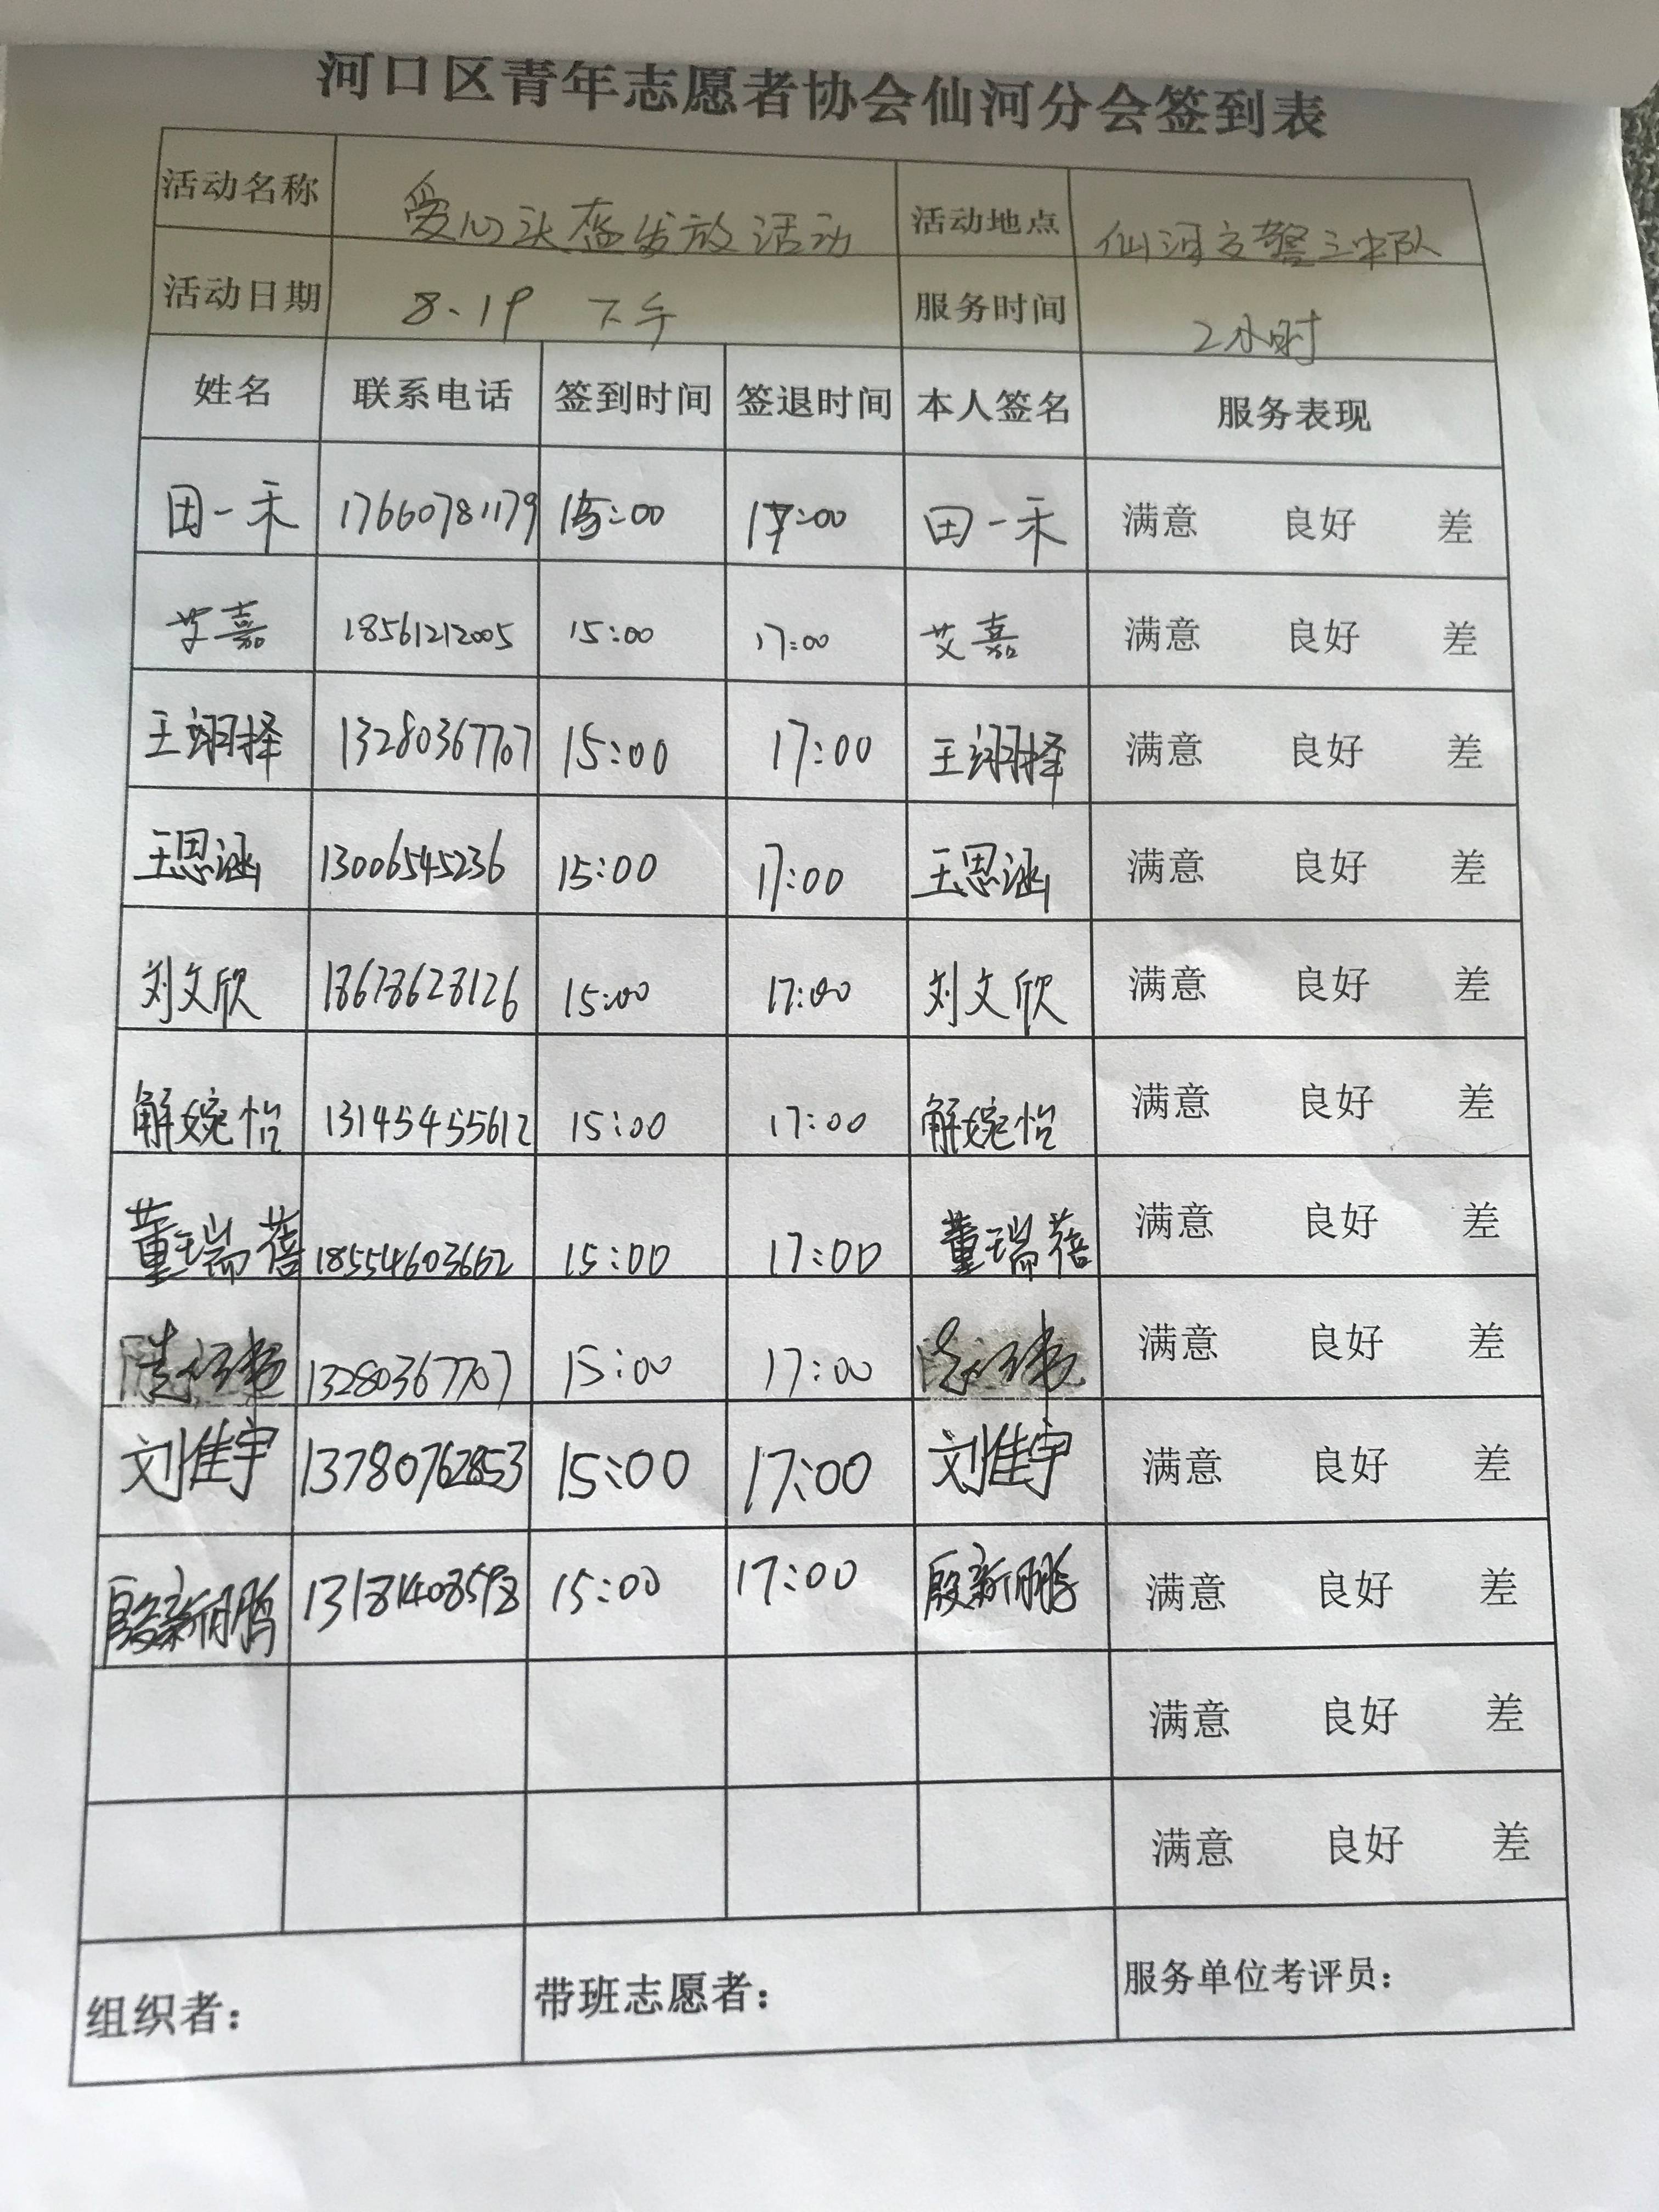 河口区青年志愿者协会仙河分会签到表
活动名称 爱心头盔发放活动 活动地点 仙河交警三中队
活动日期 8.19 下午 服务时间 2小时
姓名 联系电话 签到时间 签退时间 本人签名 服务表现
田一禾 17660781179 15:00 17:00 田一禾 满意 良好 差
艾嘉 18561212005 15:00 17:00 艾嘉 满意 良好 差
王翊择 13280367707 15:00 17:00 王翊择 满意 良好 差
王思涵 13006545236 15:00 17:00 王思涵 满意 良好 差
刘文欣 18678628126 15:00 17:00 刘文欣 满意 良好 差
解婉怡 13145455612 15:00 17:00 解婉怡 满意 良好 差
董瑞蓓 18554603662 15:00 17:00 董瑞蓓 满意 良好 差
13280367707 15:00 17:00 满意 良好 差
刘佳宇 13780762853 15:00 17:00 刘佳宇 满意 良好 差
殷新鹏 13181408598 15:00 17:00 殷新鹏 满意 良好 差
满意 良好 差
满意 良好 差
组织者： 带班志愿者： 服务单位考评员：